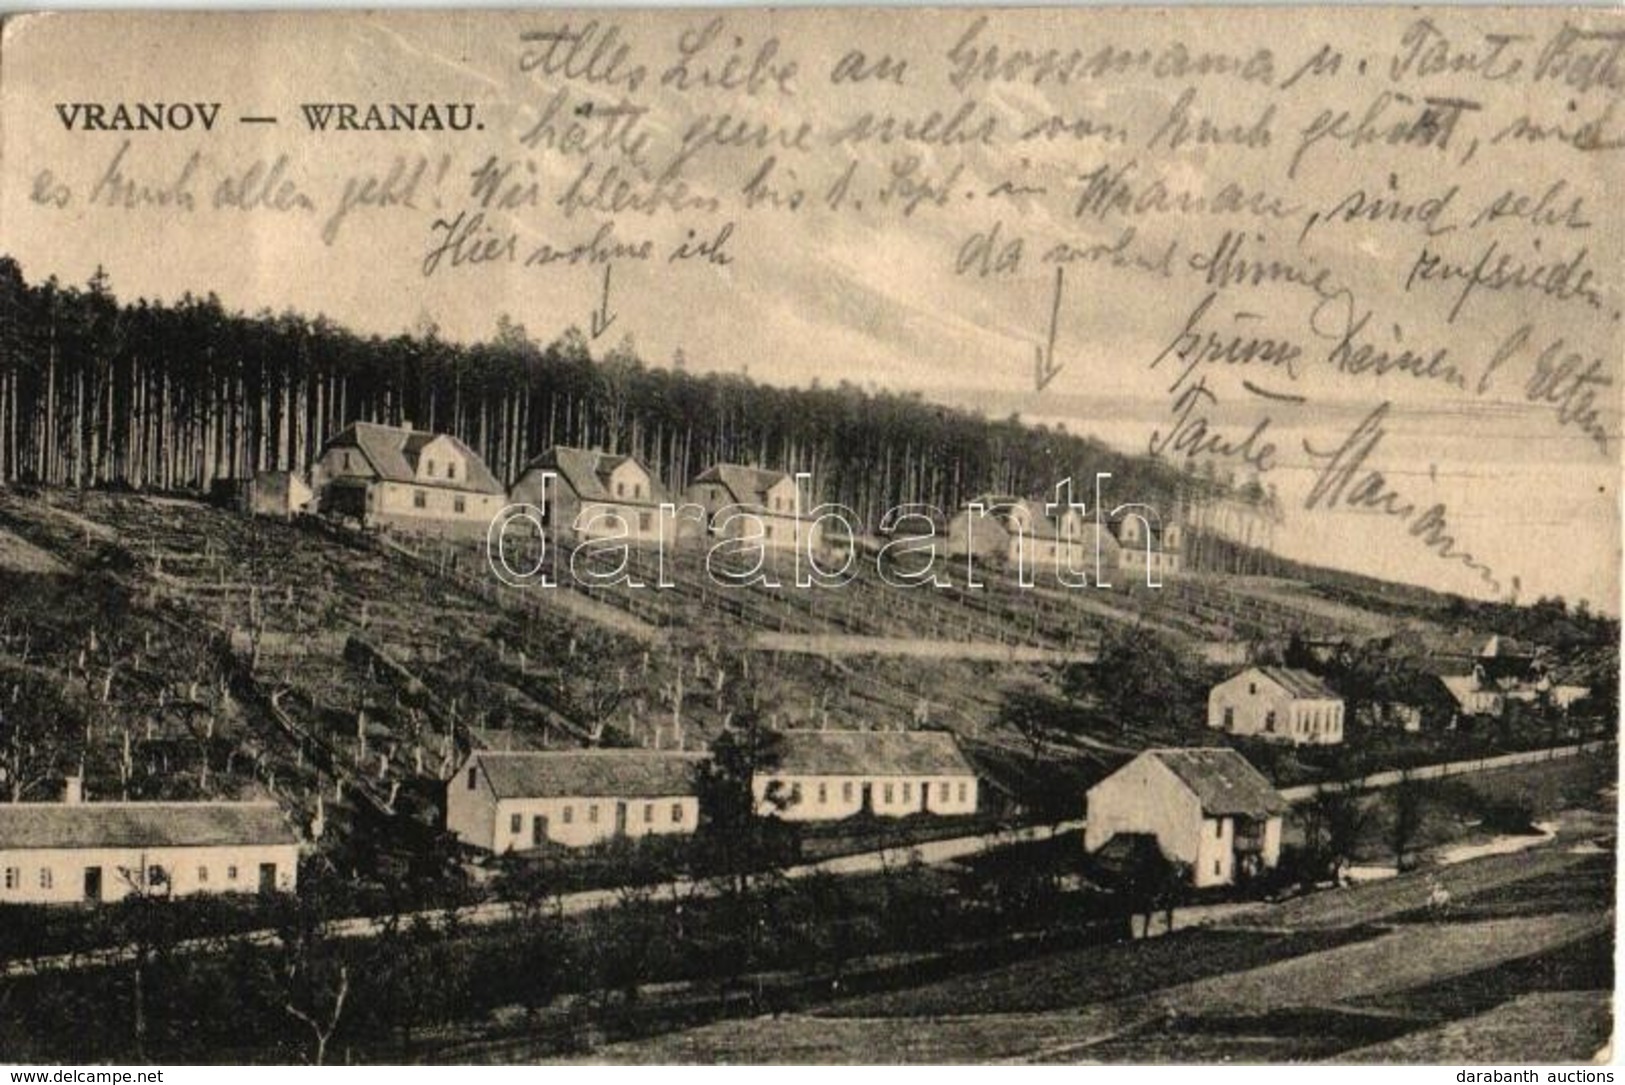 Alles Liebe an Grossmama u. Tante
VRANOV — WRANAU.
hätte gerne mehr von Euch gehört, wie
es Euch allen geht! Wir bleiben bis 1. Sept. in Wranau, sind sehr
zufrieden.
Hier wohne ich
da wohnt Minnie
Grüsse Deinen l. Eltern
Tante
darabanth
www.delcampe.net
darabanth auctions